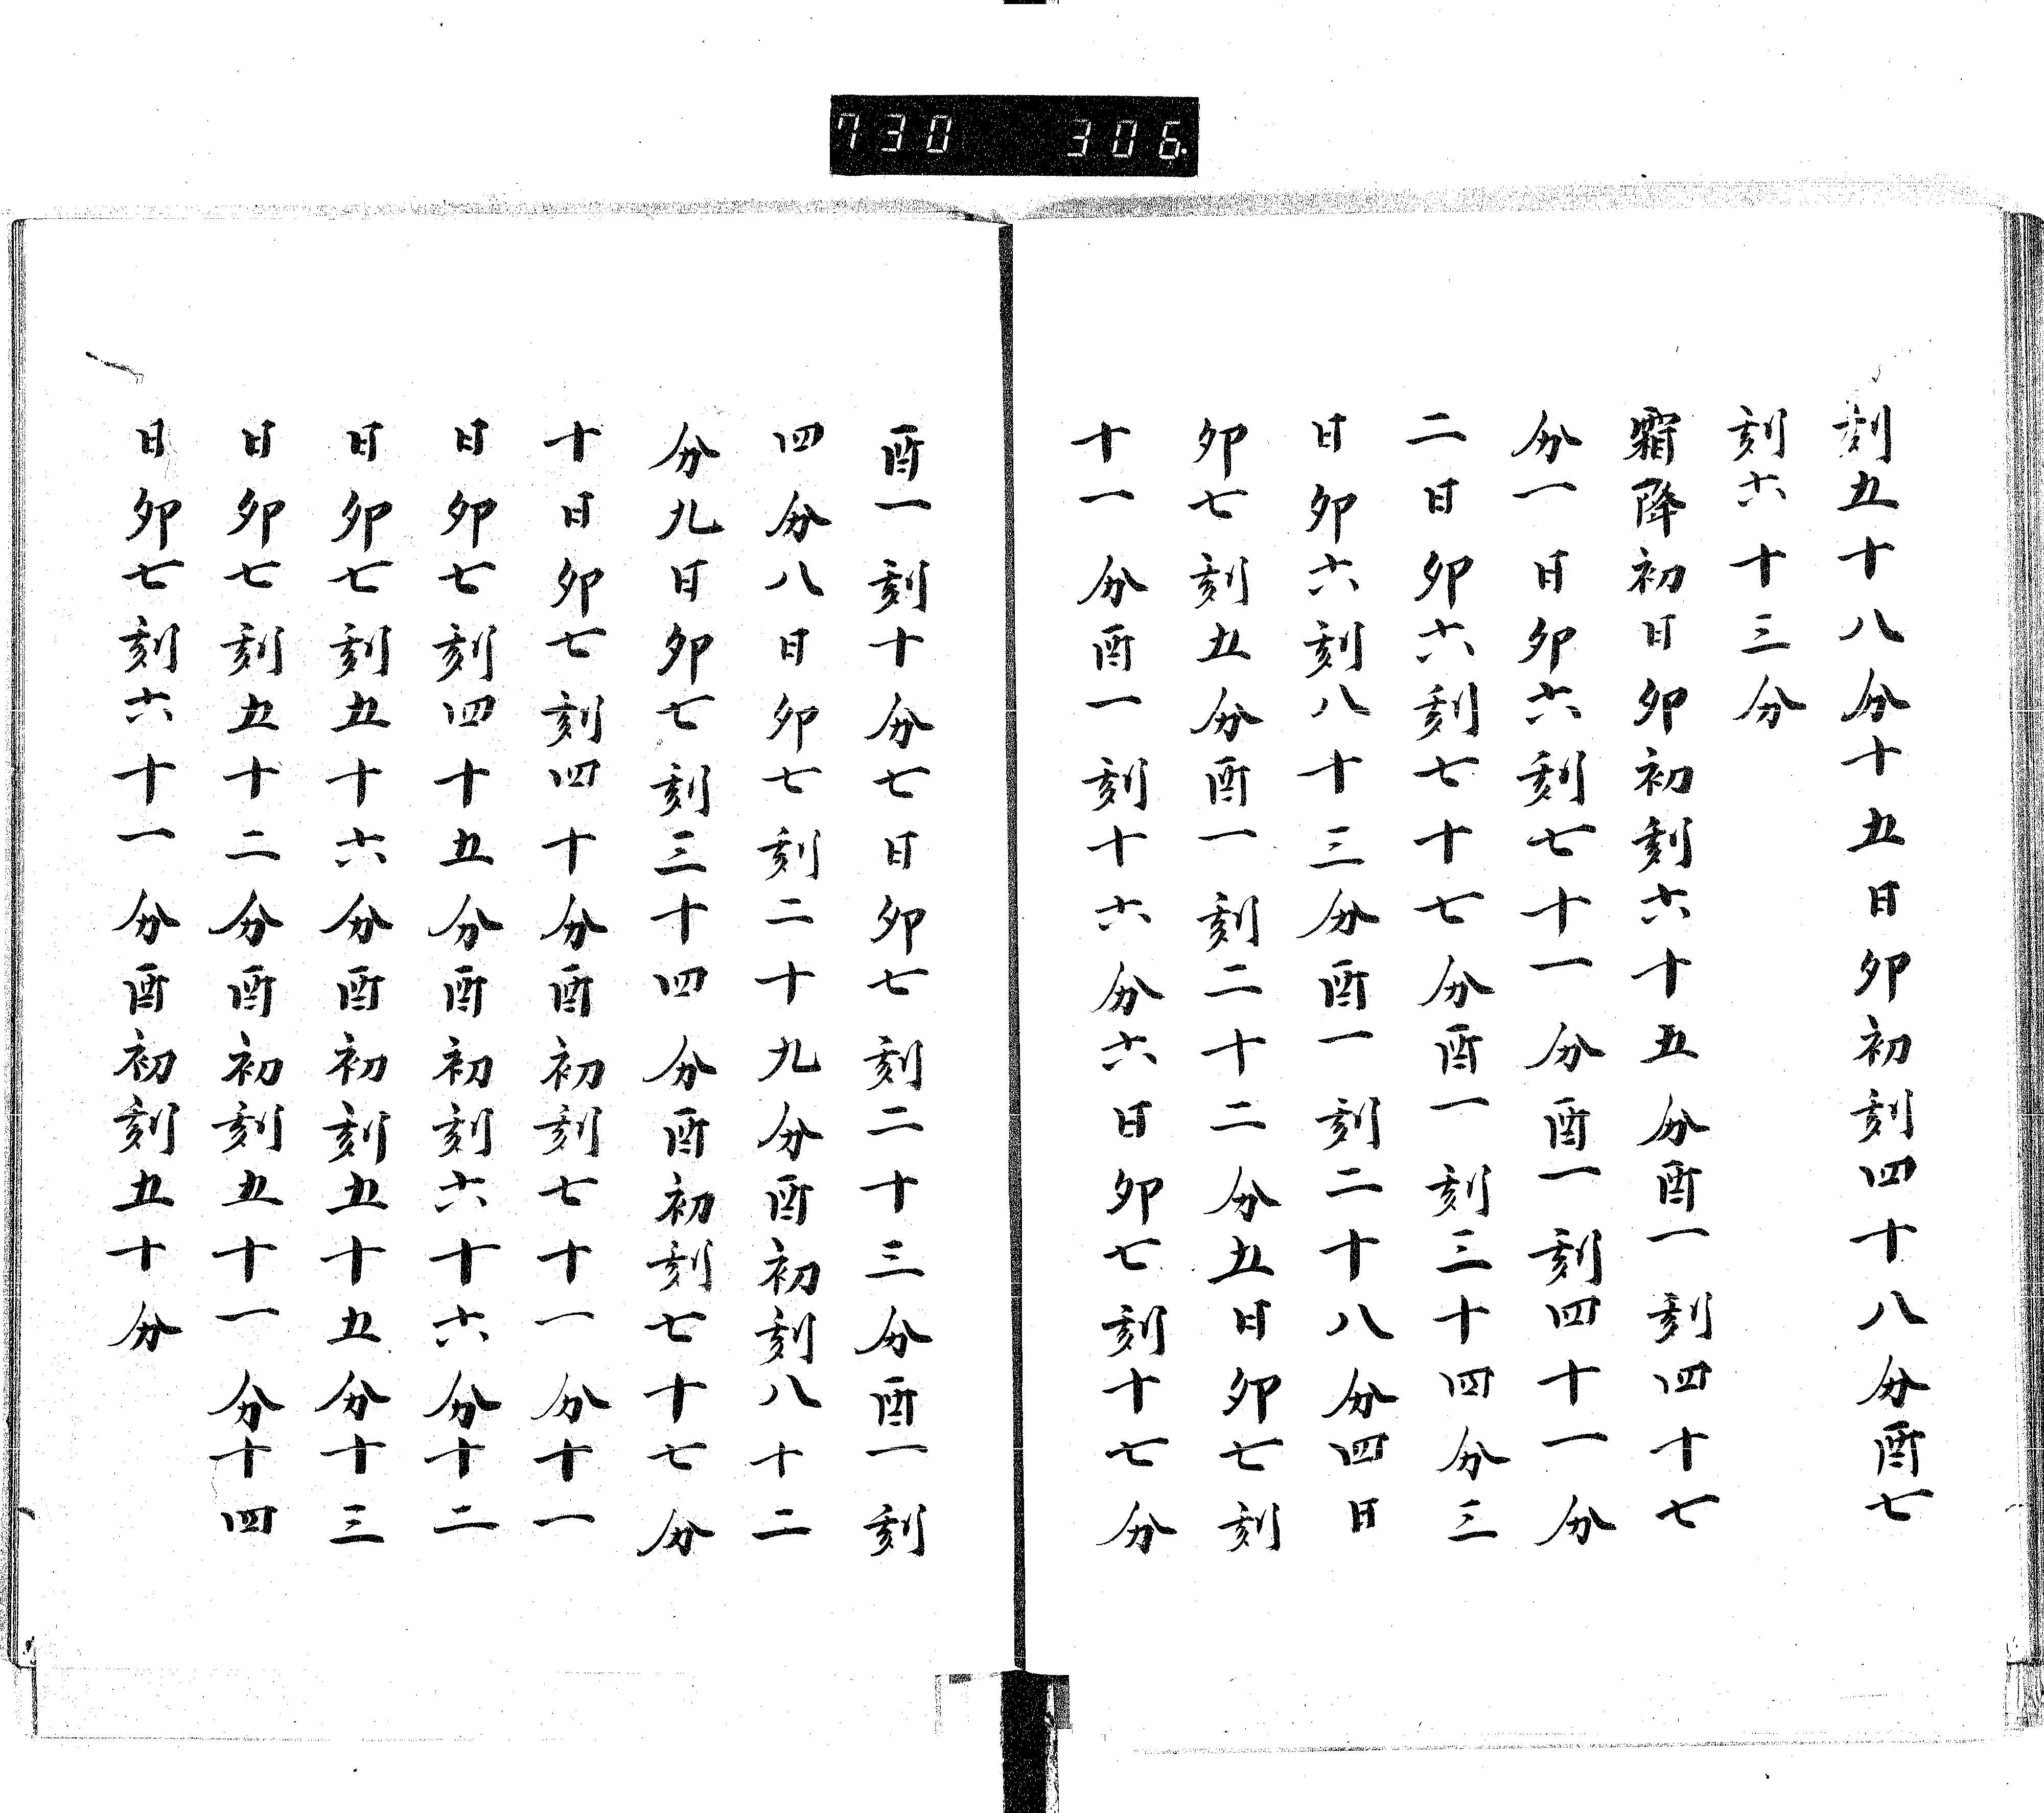 730 306
刻五十八分十五日卯初刻四十八分酉七
刻六十三分
霜降初日卯初刻六十五分酉一刻四十七
分一日卯六刻七十一分酉一刻四十一分
二日卯六刻七十七分酉一刻三十四分三
日卯六刻八十三分酉一刻二十八分四日
卯七刻五分酉一刻二十二分五日卯七刻
十一分酉一刻十六分六日卯七刻十七分
酉一刻十分七日卯七刻二十三分酉一刻
四分八日卯七刻二十九分酉初刻八十二
分九日卯七刻三十四分酉初刻七十七分
十日卯七刻四十分酉初刻七十一分十一
日卯七刻四十五分酉初刻六十六分十二
日卯七刻五十六分酉初刻五十五分十三
日卯七刻五十二分酉初刻五十一分十四
日卯七刻六十一分酉初刻五十分